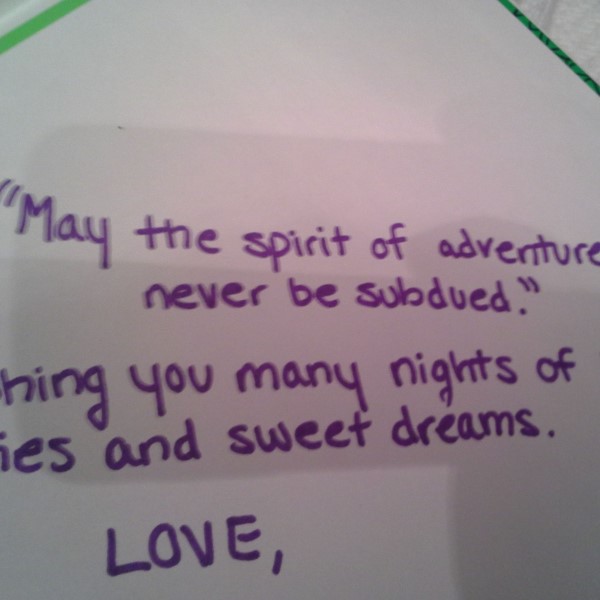 "May the spirit of adventure
never be subdued."
hing you many nights of
ies and sweet dreams.
LOVE,